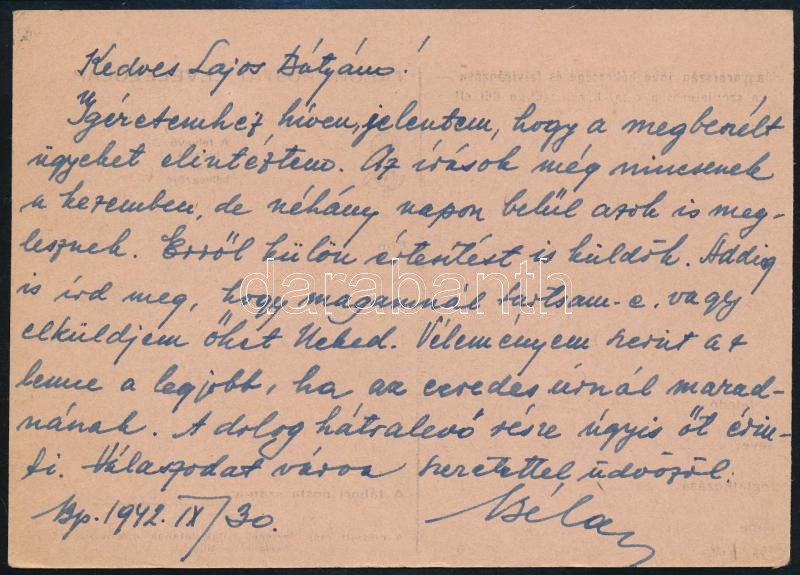 Kedves Lajos Bátyám!
Igéretemhez híven, jelentem, hogy a megbeszélt
ügyeket elintéztem. Az írások még nincsenek
a kezemben, de néhány napon belül azok is meg-
lesznek. Erről külön értesítést is küldök. Addig
is írd meg, hogy magamnál tartsam-e, vagy
elküldjem őket Neked. Véleményem szerint az
lenne a legjobb, ha az ezredes úrnál marad-
nának. A dolog hátralevő része úgyis őt érin-
ti. Válaszodat várva szeretettel üdvözöl:
Bp. 1942. IX/30. Béla
darabanth